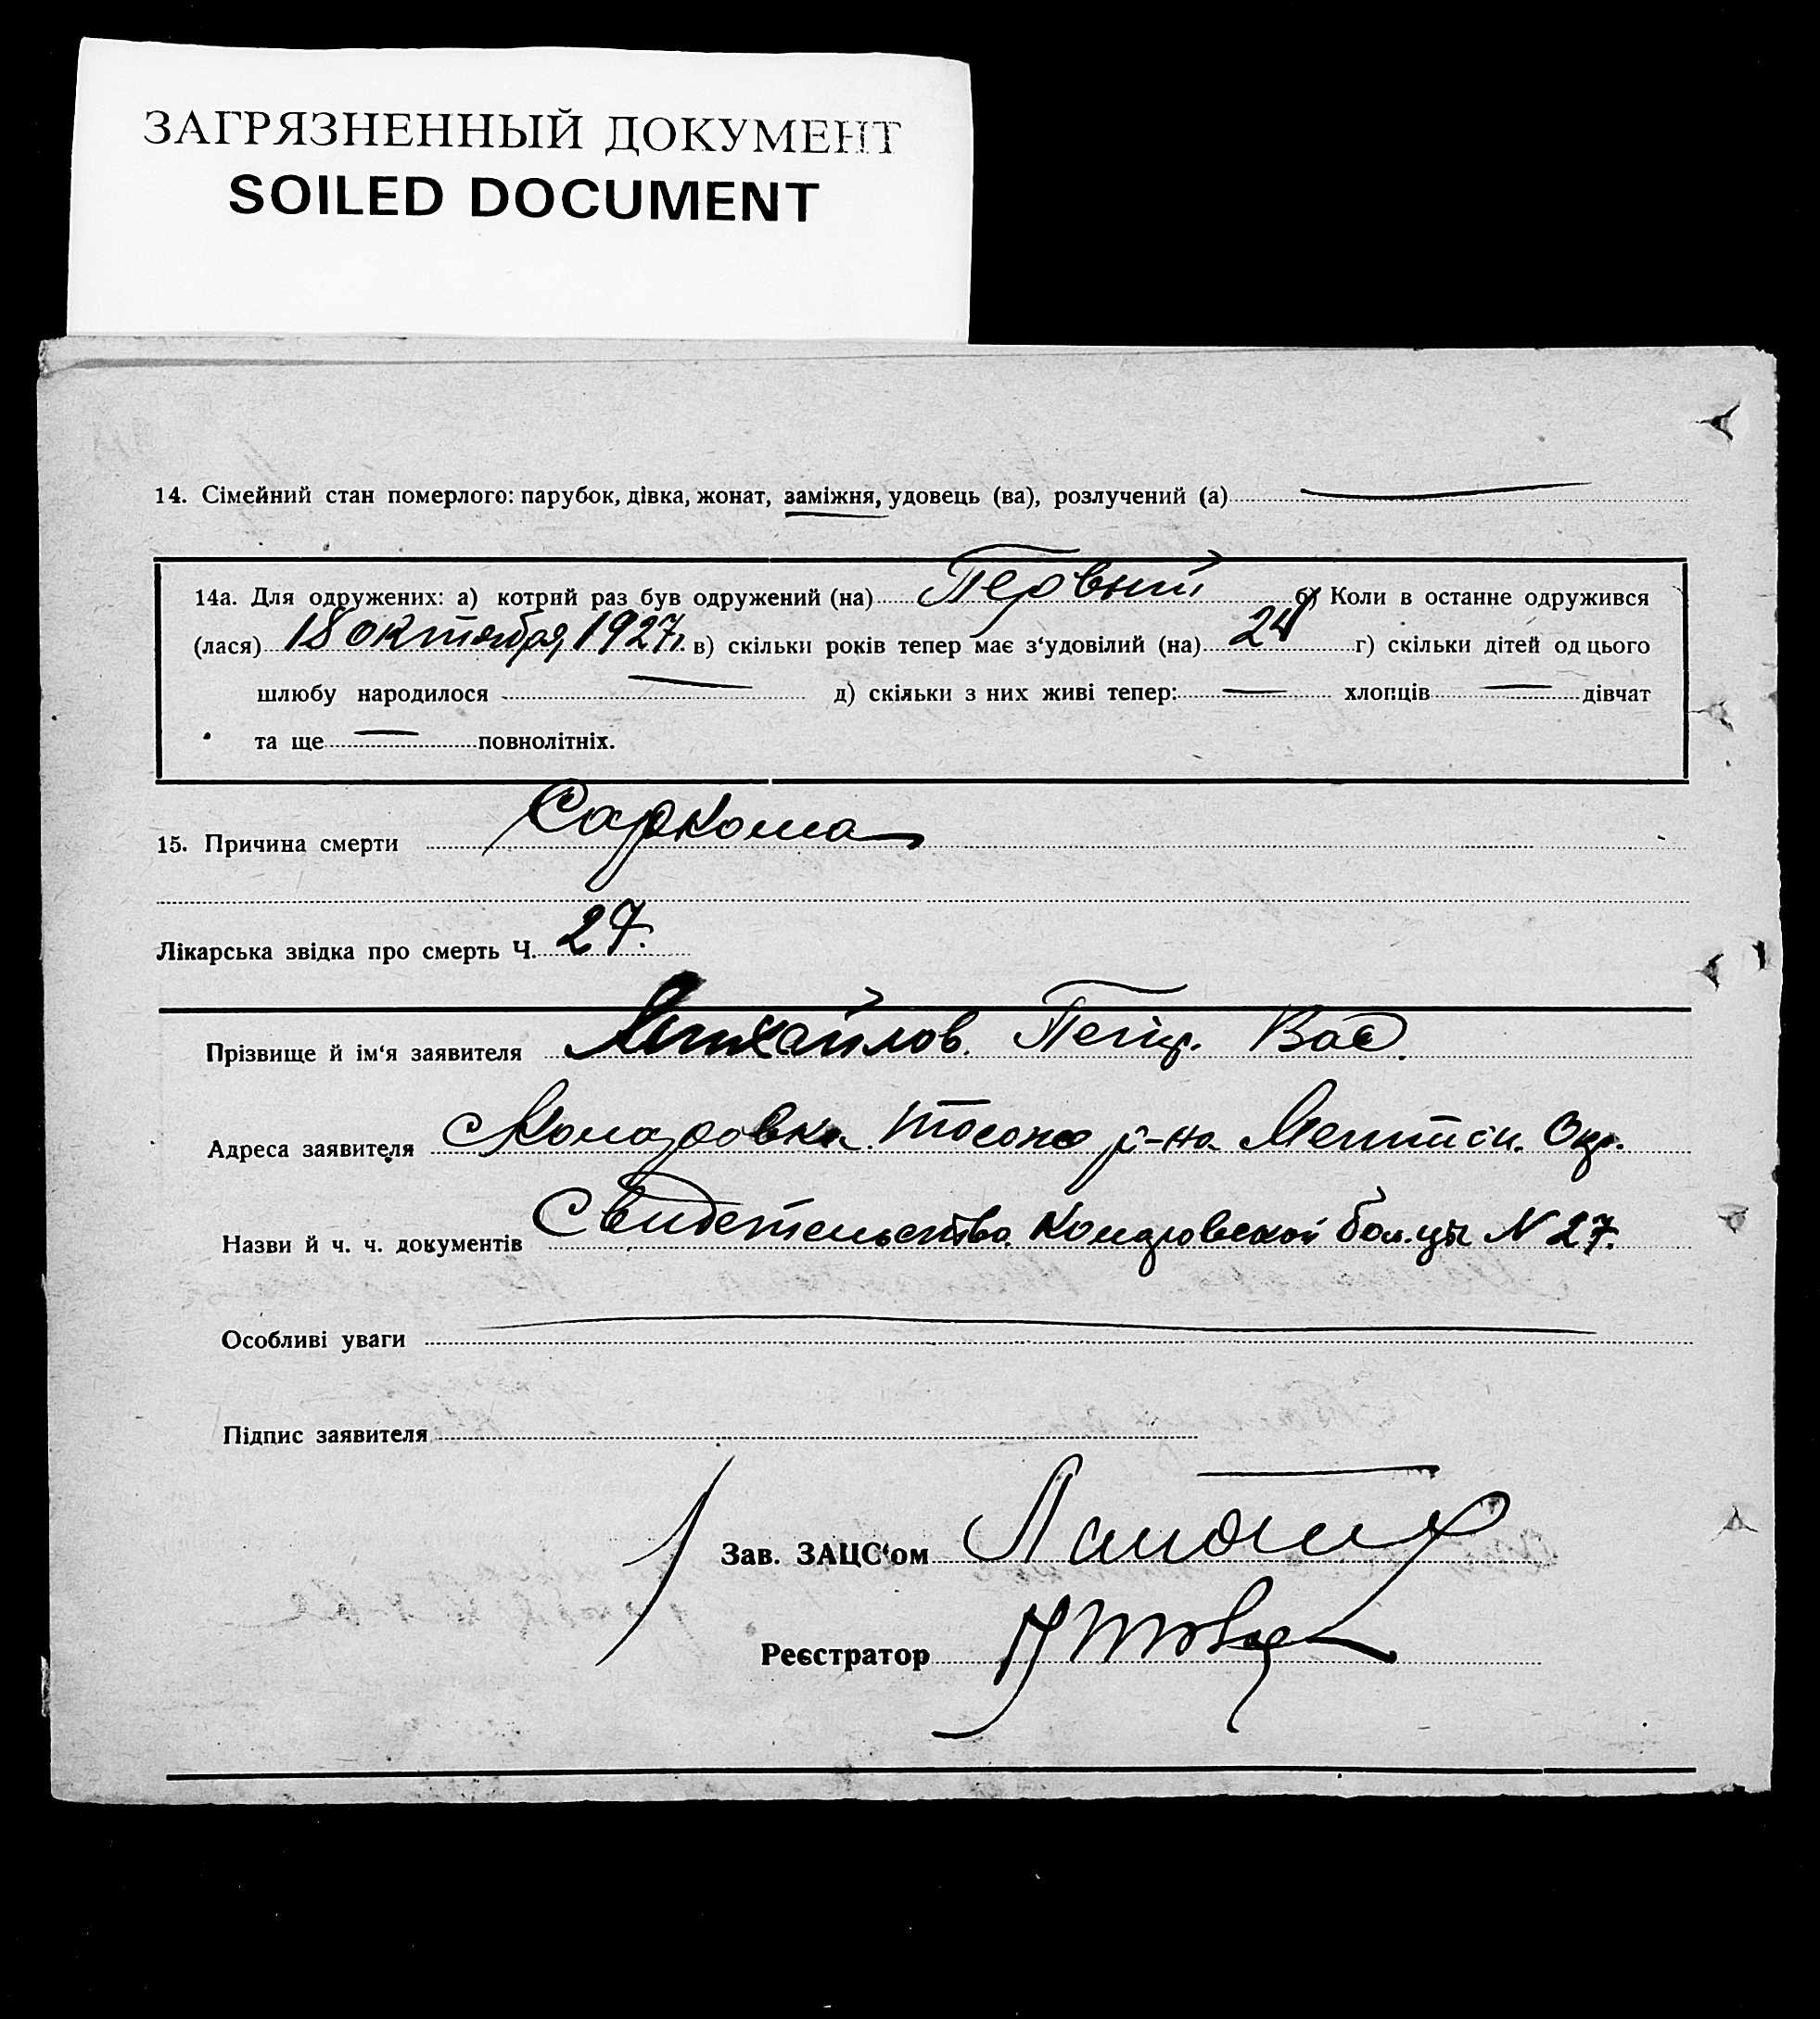 ЗАГРЯЗНЕННЫЙ ДОКУМЕНТ
SOILED DOCUMENT
14. Сімейний стан померлого: парубок, дівка, жонат, заміжня, удовець (ва), розлучений (а)
14а. Для одружених: а) котрий раз був одружений (на) Первый б) Коли в останне одружився
(лася) 18 октября 1927г. в) скільки років тепер має з‘удовілий (на) 24 г) скільки дітей од цього
шлюбу народилося д) скільки з них живі тепер: хлопців дівчат
та ще повнолітніх.
15. Причина смерти Саркома
Лікарська звідка про смерть Ч. 27.
Прізвище й ім‘я заявителя Михайлов. Петр. Вас.
Адреса заявителя р-на Окр.
Назви й ч. ч. документів Свидетельство бол.цы N 27.
Особливі уваги
Підпис заявителя
Зав. ЗАЦС‘ом
Реєстратор